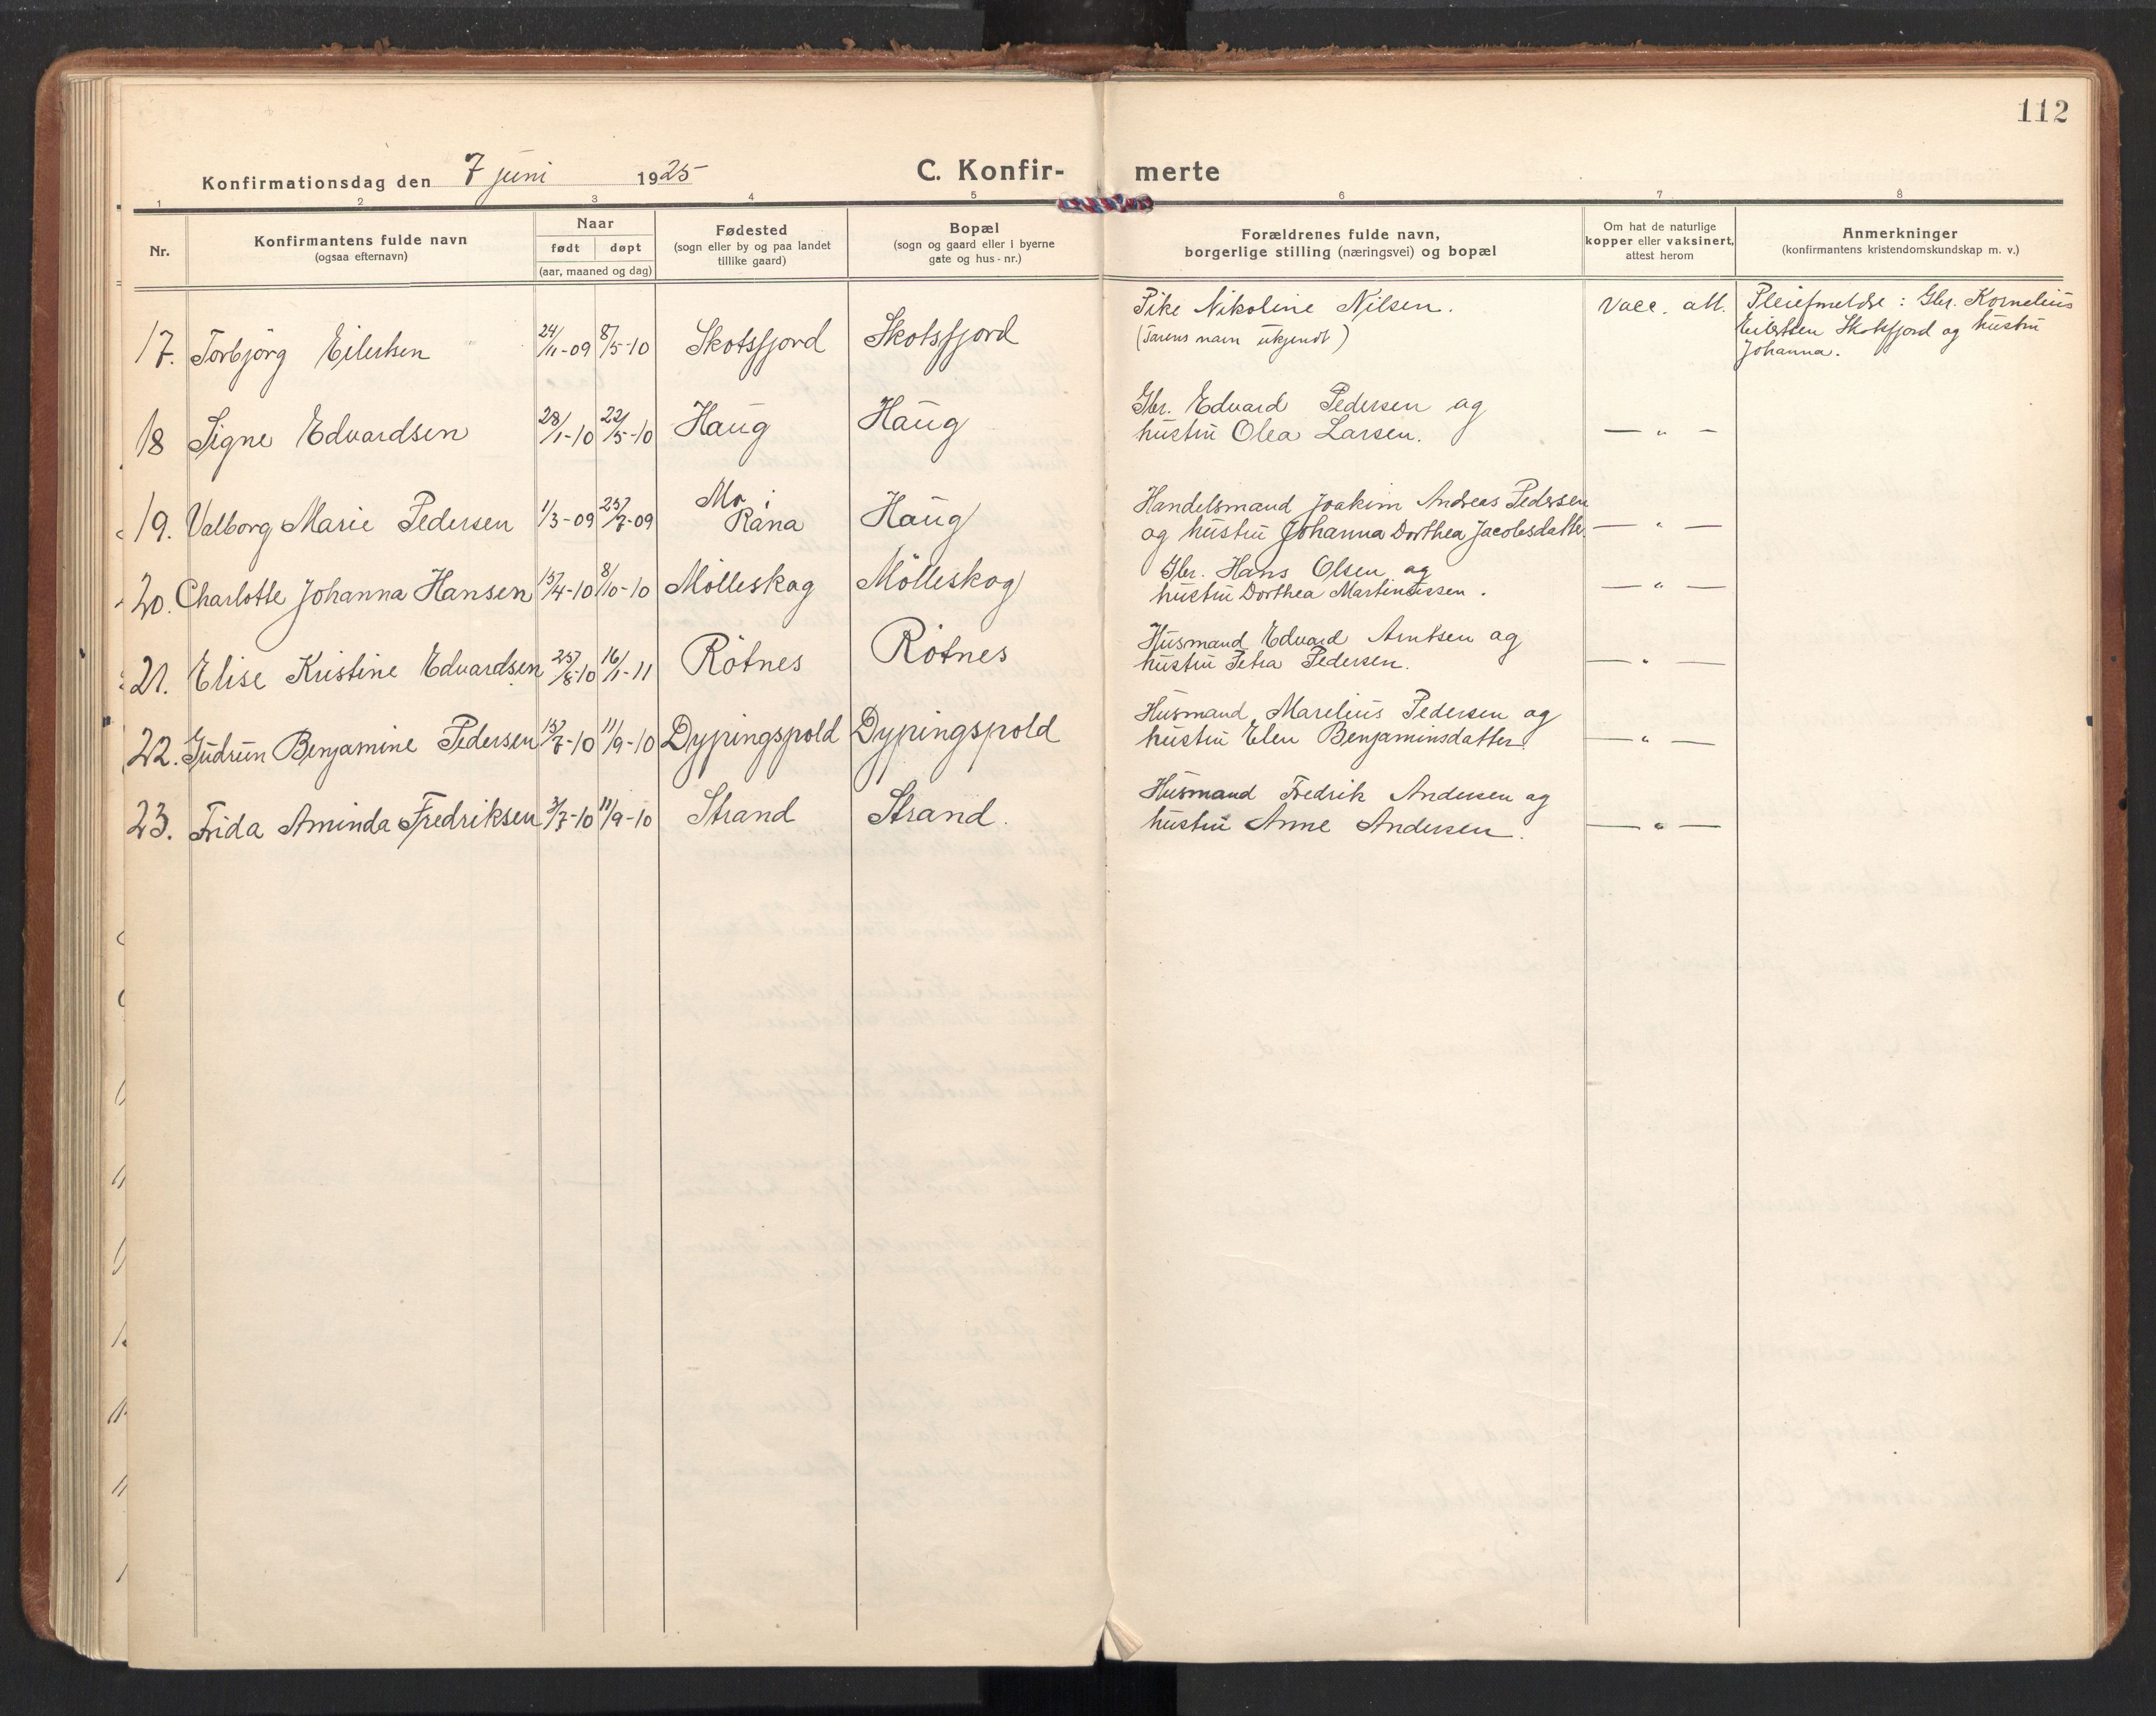 112
Konfirmationsdag den 7 juni 1925
C. Konfir- merte
1 2 3 4 5 6 7 8
Nr.
Konfirmantens fulde navn
(ogsaa efternavn)
Naar
født døpt
(aar, maaned og dag)
Fødested
(sogn eller by og paa landet
tillike gaard)
Bopæl
(sogn og gaard eller i byerne
gate og hus-nr.)
Forældrenes fulde navn,
borgerlige stilling (næringsvei) og bopæl
Om hat de naturlige
kopper eller vaksinert,
attest herom
Anmerkninger
(konfirmantens kristendomskundskap m. v.)
17. Torbjörg Eilertsen 24/11-09 8/5-10 Skotsfjord Skotsfjord Pike Nikoline Nilsen. Vacc. att. Pleiefmeldre: Gbr. Kornelius
(Farens navn ukjendt) Eilertsen Skotsfjord og hustru
Johanna.
18 Signe Edvardsen 28/1-10 22/5-10 Haug Haug Gbr. Edvard Pedersen og
hustru Olea Larsen. — „ —
19. Valborg Marie Pedersen 1/3-09 25/7-09 Mo i Haug Handelsmand Joakim Andreas Pedersen
Rana og hustru Johanna Dorthea Jacobsdatter. — „ —
20. Charlotte Johanna Hansen 15/4-10 8/10-10 Mölleskog Mölleskog Gbr. Hans Olsen og
hustru Dorthea Martinussen. — „ —
21. Elise Kristine Edvardsen 25/8-10 16/1-11 Rötnes Rötnes Husmand Edvard Arntsen og
hustru Petra Pedersen. — „ —
22. Gudrun Benjamine Pedersen 15/7-10 11/9-10 Dypingspold Dypingspold Husmand Marelius Pedersen og
hustru Elen Benjaminsdatter. — „ —
23. Frida Aminda Fredriksen 3/7-10 11/9-10 Strand Strand. Husmand Fredrik Andersen og
hustru Anne Andersen. — „ —